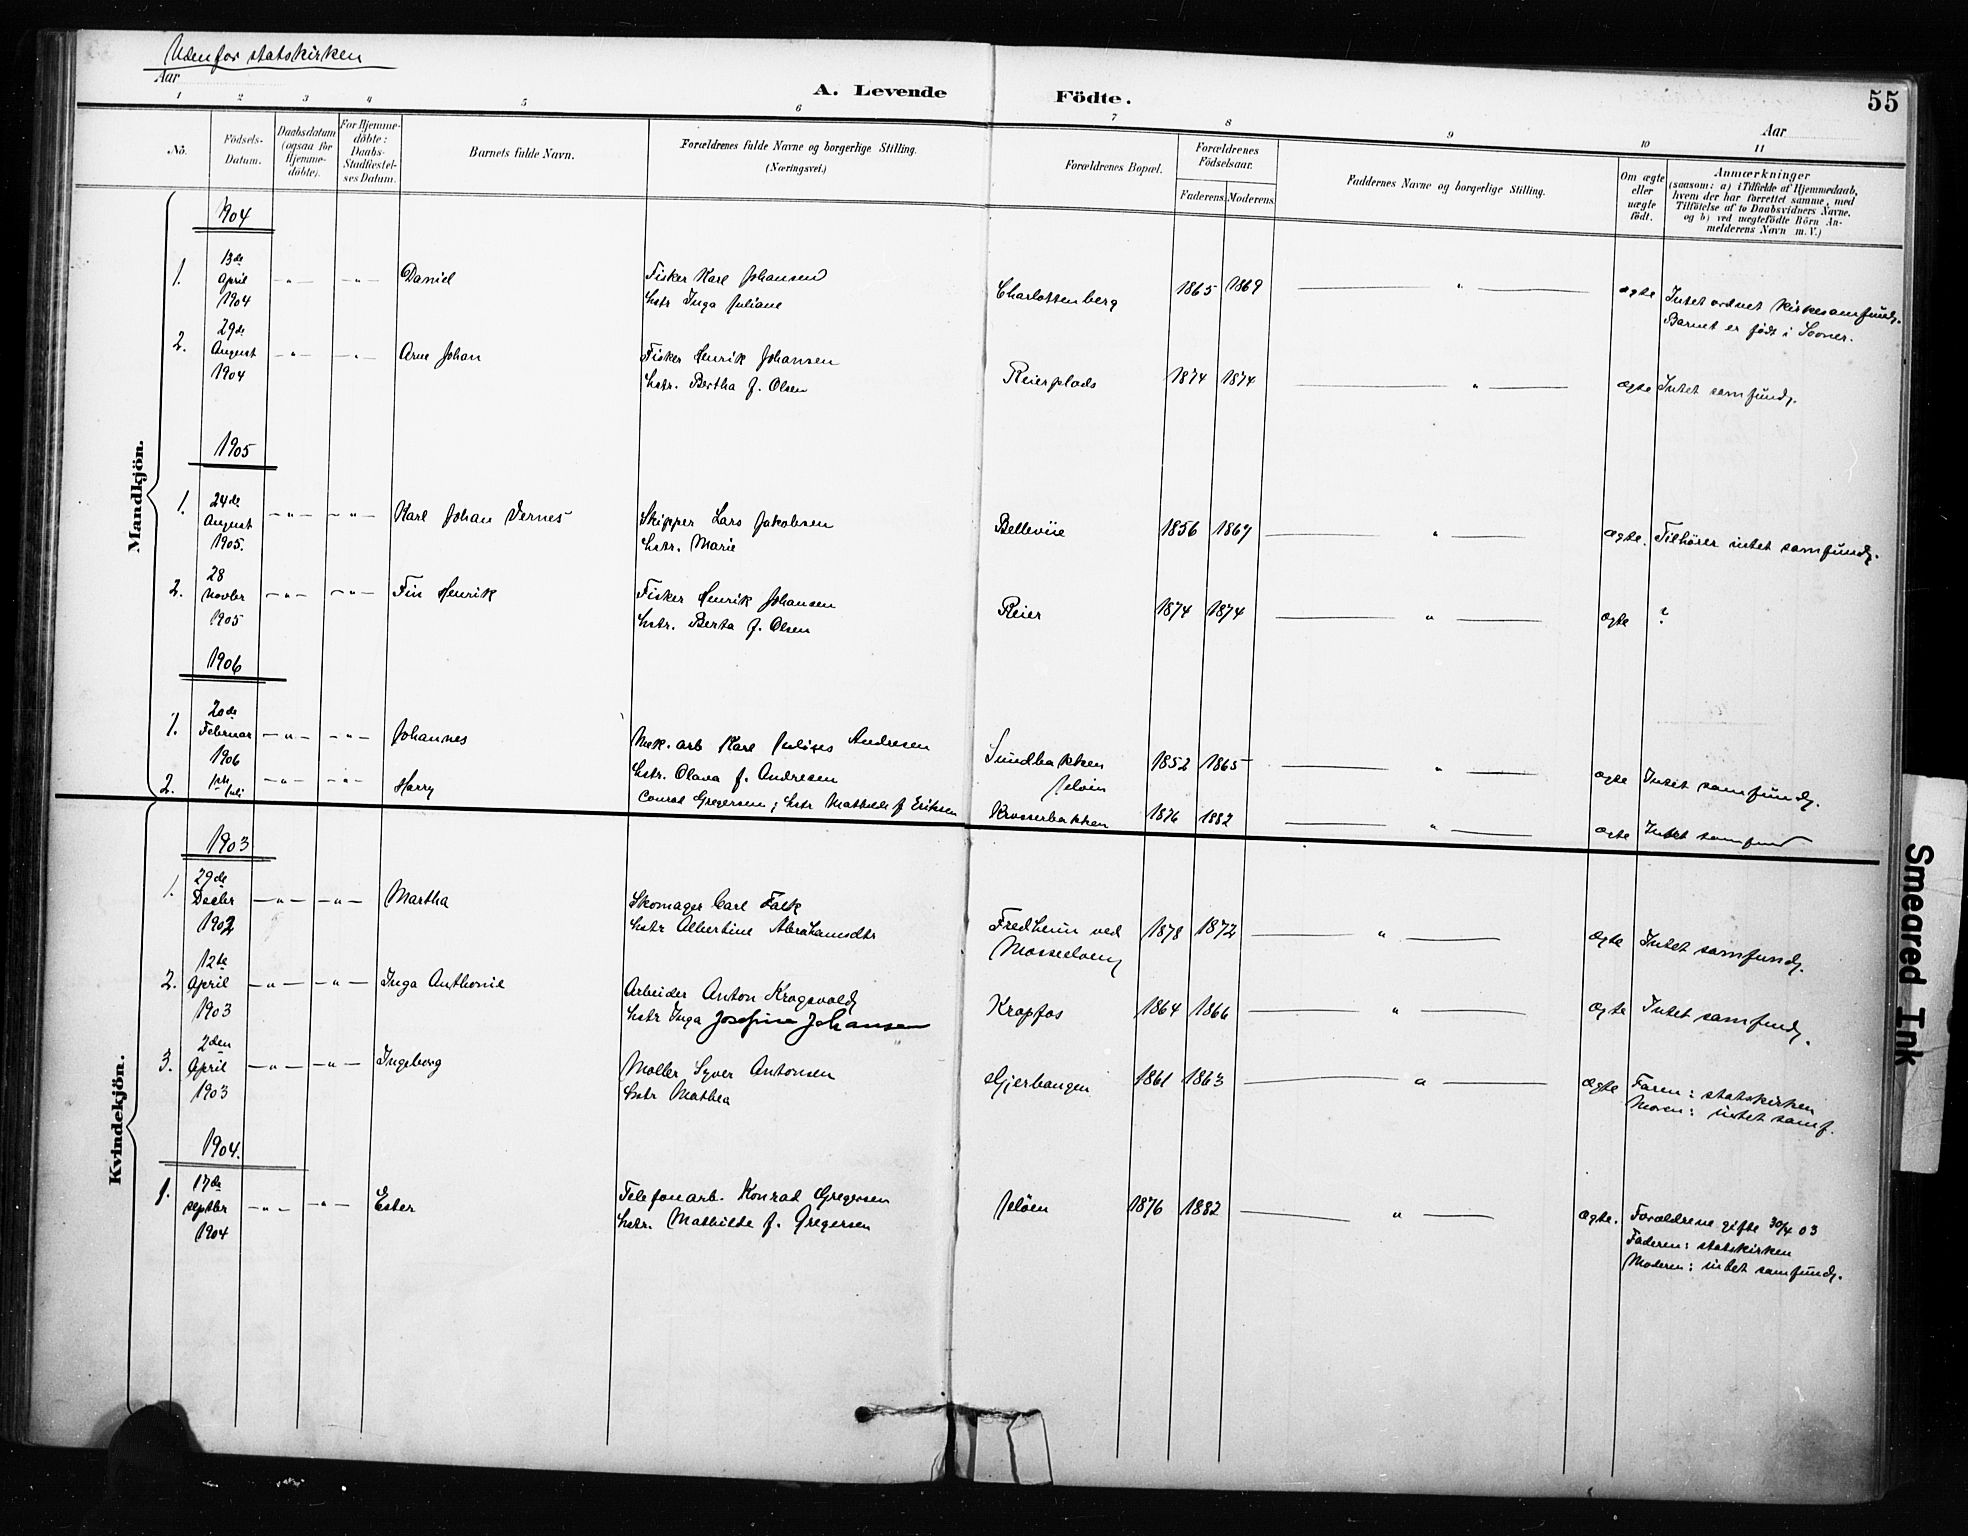 Udenfor statskirken
Aar
A. Levende Födte.
55
Aar
1 2 3 4 5 6 7 8 9 10 11
Nö.
Födsels-
Datum.
Daabsdatum
(ogsaa for
Hjemme-
döbte).
For Hjemme-
döbte:
Daabs-
Stadfæstel-
ses Datum.
Barnets fulde Navn.
Forældrenes fulde Navne og borgerlige Stilling.
(Næringsvei.)
Forældrenes Bopæl.
Forældrenes
Födselsaar.
Faderens. Moderens.
Faddernes Navne og borgerlige Stilling.
Om ægte
eller
uægte
födt.
Anmærkninger
(saasom: a) i Tilfælde af Hjemmedaab,
hvem der har forrettet samme, med
Tilföielse af to Daabsvidners Navne.
og b) ved uegtefödte Börn An-
melderens Navn m. V.)
Mandkjön.
1904
1. 13de April 1904 Daniel
Fisker Karl Johansen
hstr Inga Juliane
Charlottenberg 1865 1869 ægte
Intet ordnet kirkesamfund.
Barnet er født i Sooner.
2. 29de August 1904 Arne Johan
Fisker Henrik Johansen
hstr. Bertha f. Olsen
Reierplads 1874 1874 ægte Intet samfund.
1905
1. 24de August 1905. Karl Johan Vernes
Skipper Lars Jakobsen
hstr. Marie
Bellevüe 1856 1867 ægte. Tilhører intet samfund.
2. 28 Novber 1905 Fin Henrik
Fisker Henrik Johansen
hstr. Berta f. Olsen
Reier 1874 1874 ægte ?
1906
1. 20de Februar 1906 Johannes
Mek. arb Karl Julius Andresen
hstr. Olava f. Andresen
Sundbakken
Jeløen
1852 1865 ægte Intet samfund.
2. 1ste Juli Harry
Conrad Gregersen; hstr Mathilde f Eriksen
Krosserbakken 1876 1882 ægte Intet samfund
Kvindekjön.
1903
1. 29de Decbr 1902 Martha
Skomager Carl Falk
hstr Albertine Abrahamsdtr
Fredheim ved
Mosseelven
1878 1872 ægte Intet samfund.
2. 12te April 1903 Inga Anthonie
Arbeider Anton Kragsvold
hstr Inga Josefine Johansen
Kropfos 1864 1866 ægte Intet samfund.
3. 2den April 1903 Ingeborg
Møller Syver Antonsen
hstr Mathea
Gjerhaugen 1861 1863 ægte
Faren: statskirken
Moren: intet samf.
1904.
1. 17de septbr 1904 Ester
Telefonarb. Konrad Gregersen
hstr. Mathilde f. Gregersen
Jeløen 1876 1882 ægte.
Forældrene gifte 30/4 03
Faderen: statskirken
Moderen: intet samfund.
Smeared Ink